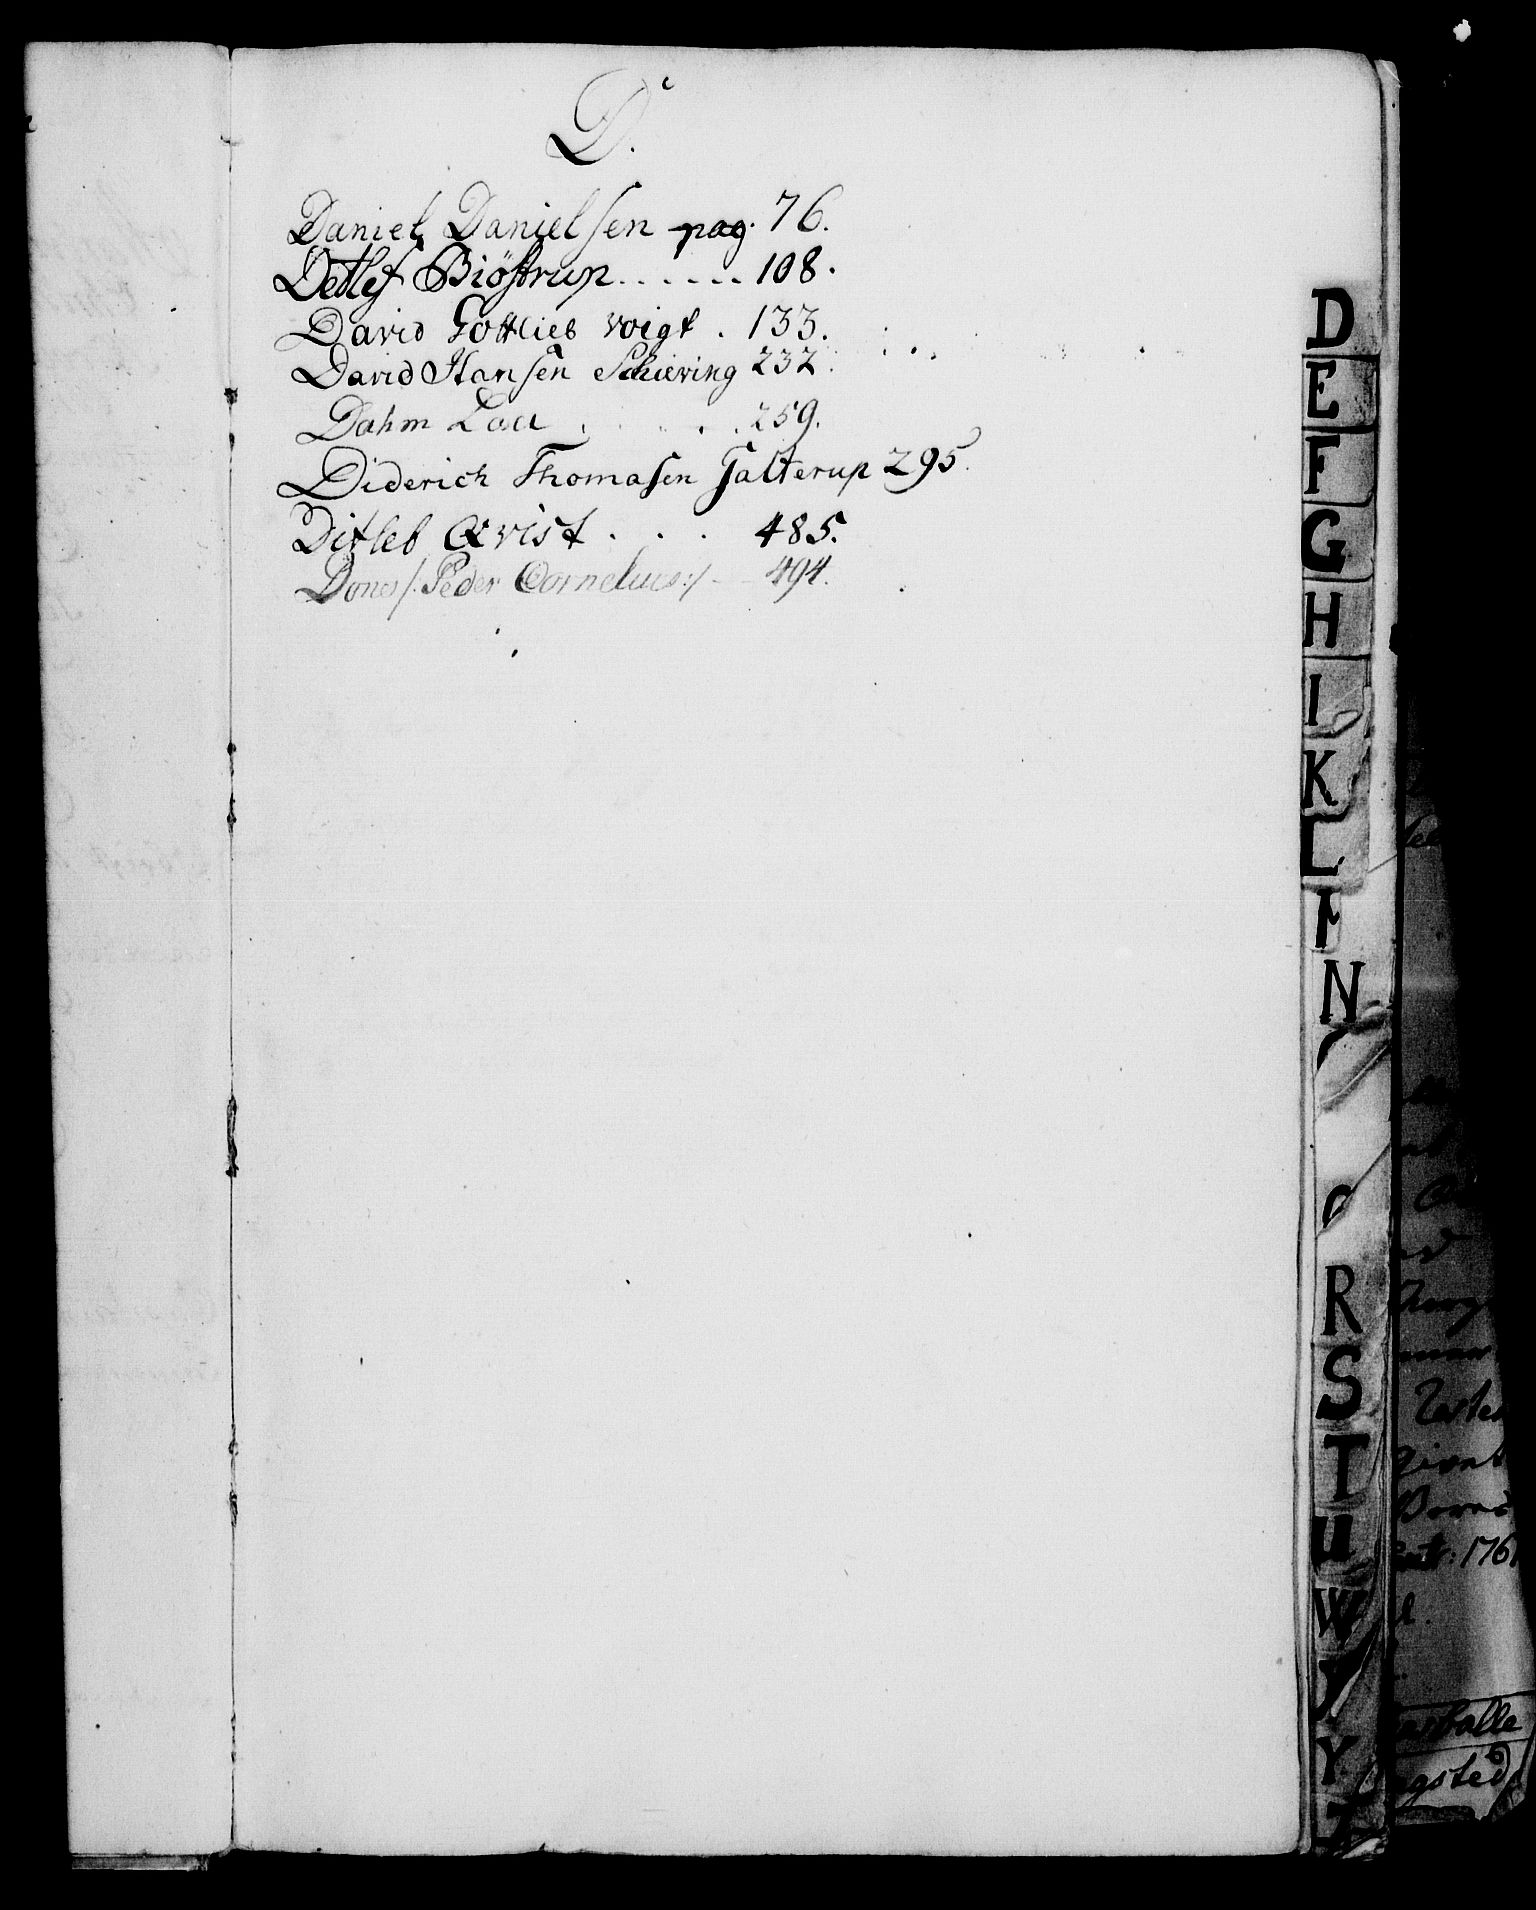 D.
Daniel Danielsen pag. 76.
Detlef Biöstrup...... 108.
David Gottlieb Voigt . 133.
David Hansen Schiering 232.
Dahm Laa . . . . 259.
Diderich Thomasen Galterup 295.
Ditleb Qvist . . . 485.
Dones /: Peder Cornelius :/ - - 494.
D
E
F
G
H
I
K
L
N
R
S
T
U
W
Y